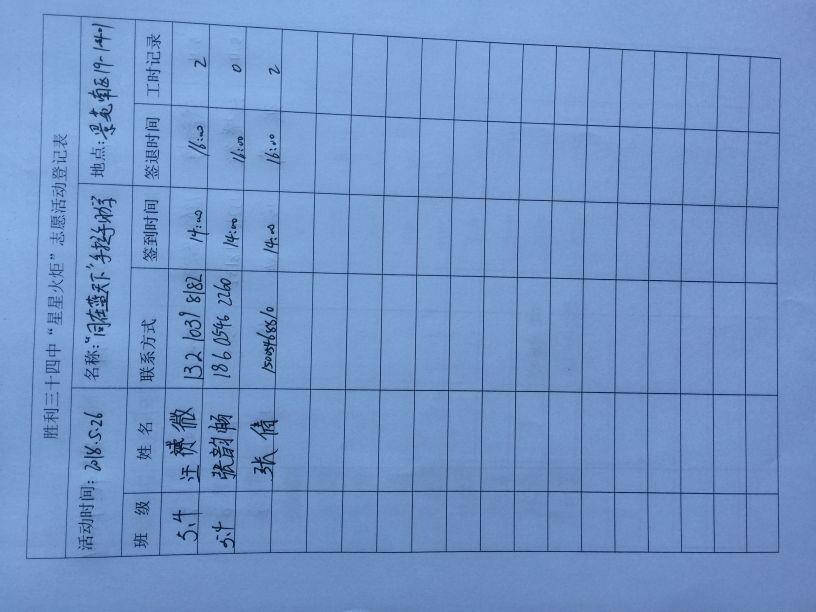 胜利三十四中“星星火炬”志愿活动登记表
活动时间：2018.5.26 名称：“同在蓝天下”手拉手助学 地点：景苑南区19-1401
班 级 姓 名 联系方式 签到时间 签退时间 工时记录
5.4 微 132 1039 8182 14:00 16:00 2
5.4 张韵畅 186 0546 2260 14:00 16:00 0
张倩 14:00 16:00 2